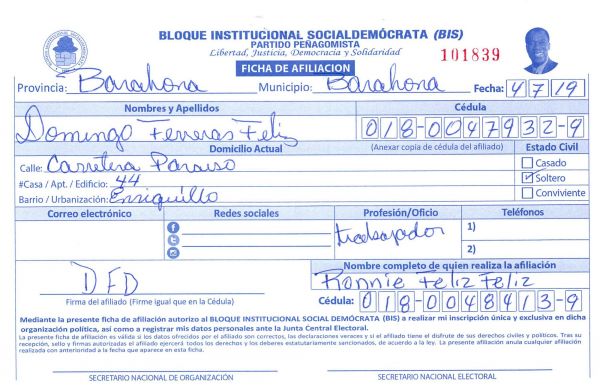 BLOQUE INSTITUCIONAL SOCIALDEMÓCRATA (BIS)
PARTIDO PEÑAGOMISTA
Libertad, Justicia, Democracia y Solidaridad
101839
FICHA DE AFILIACION
Provincia: Barahona Municipio: Barahona Fecha: 4/7/19
Nombres y Apellidos Cédula
Domingo Ferreras Feliz 018-0047932-9
Domicilio Actual (Anexar copia de cédula del afiliado) Estado Civil
Calle: Carretera Paraiso Casado
#Casa / Apt. / Edificio: 44 Soltero
Barrio / Urbanización: Enriquillo Conviviente
Correo electrónico Redes sociales Profesión/Oficio Teléfonos
trabajador 1)
2)
Nombre completo de quien realiza la afiliación
DFD Ronnie Feliz Feliz
Firma del afiliado (Firme igual que en la Cédula) Cédula: 018-0048413-9
Mediante la presente ficha de afiliación autorizo al BLOQUE INSTITUCIONAL SOCIAL DEMÓCRATA (BIS) a realizar mi inscripción única y exclusiva en dicha
organización política, así como a registrar mis datos personales ante la Junta Central Electoral.
La presente ficha de afiliación es válida si los datos ofrecidos por el afiliado son correctos, las declaraciones veraces y si el afiliado tiene el disfrute de sus derechos civiles y políticos. Tras su
recepción, sello y firmas autorizadas el afiliado ejercerá todos los derechos y los deberes estatutariamente sancionados, de acuerdo a la ley. La presente afiliación anula cualquier afiliación
realizada con anterioridad a la fecha que aparece en esta ficha.
SECRETARIO NACIONAL DE ORGANIZACIÓN SECRETARIO NACIONAL ELECTORAL